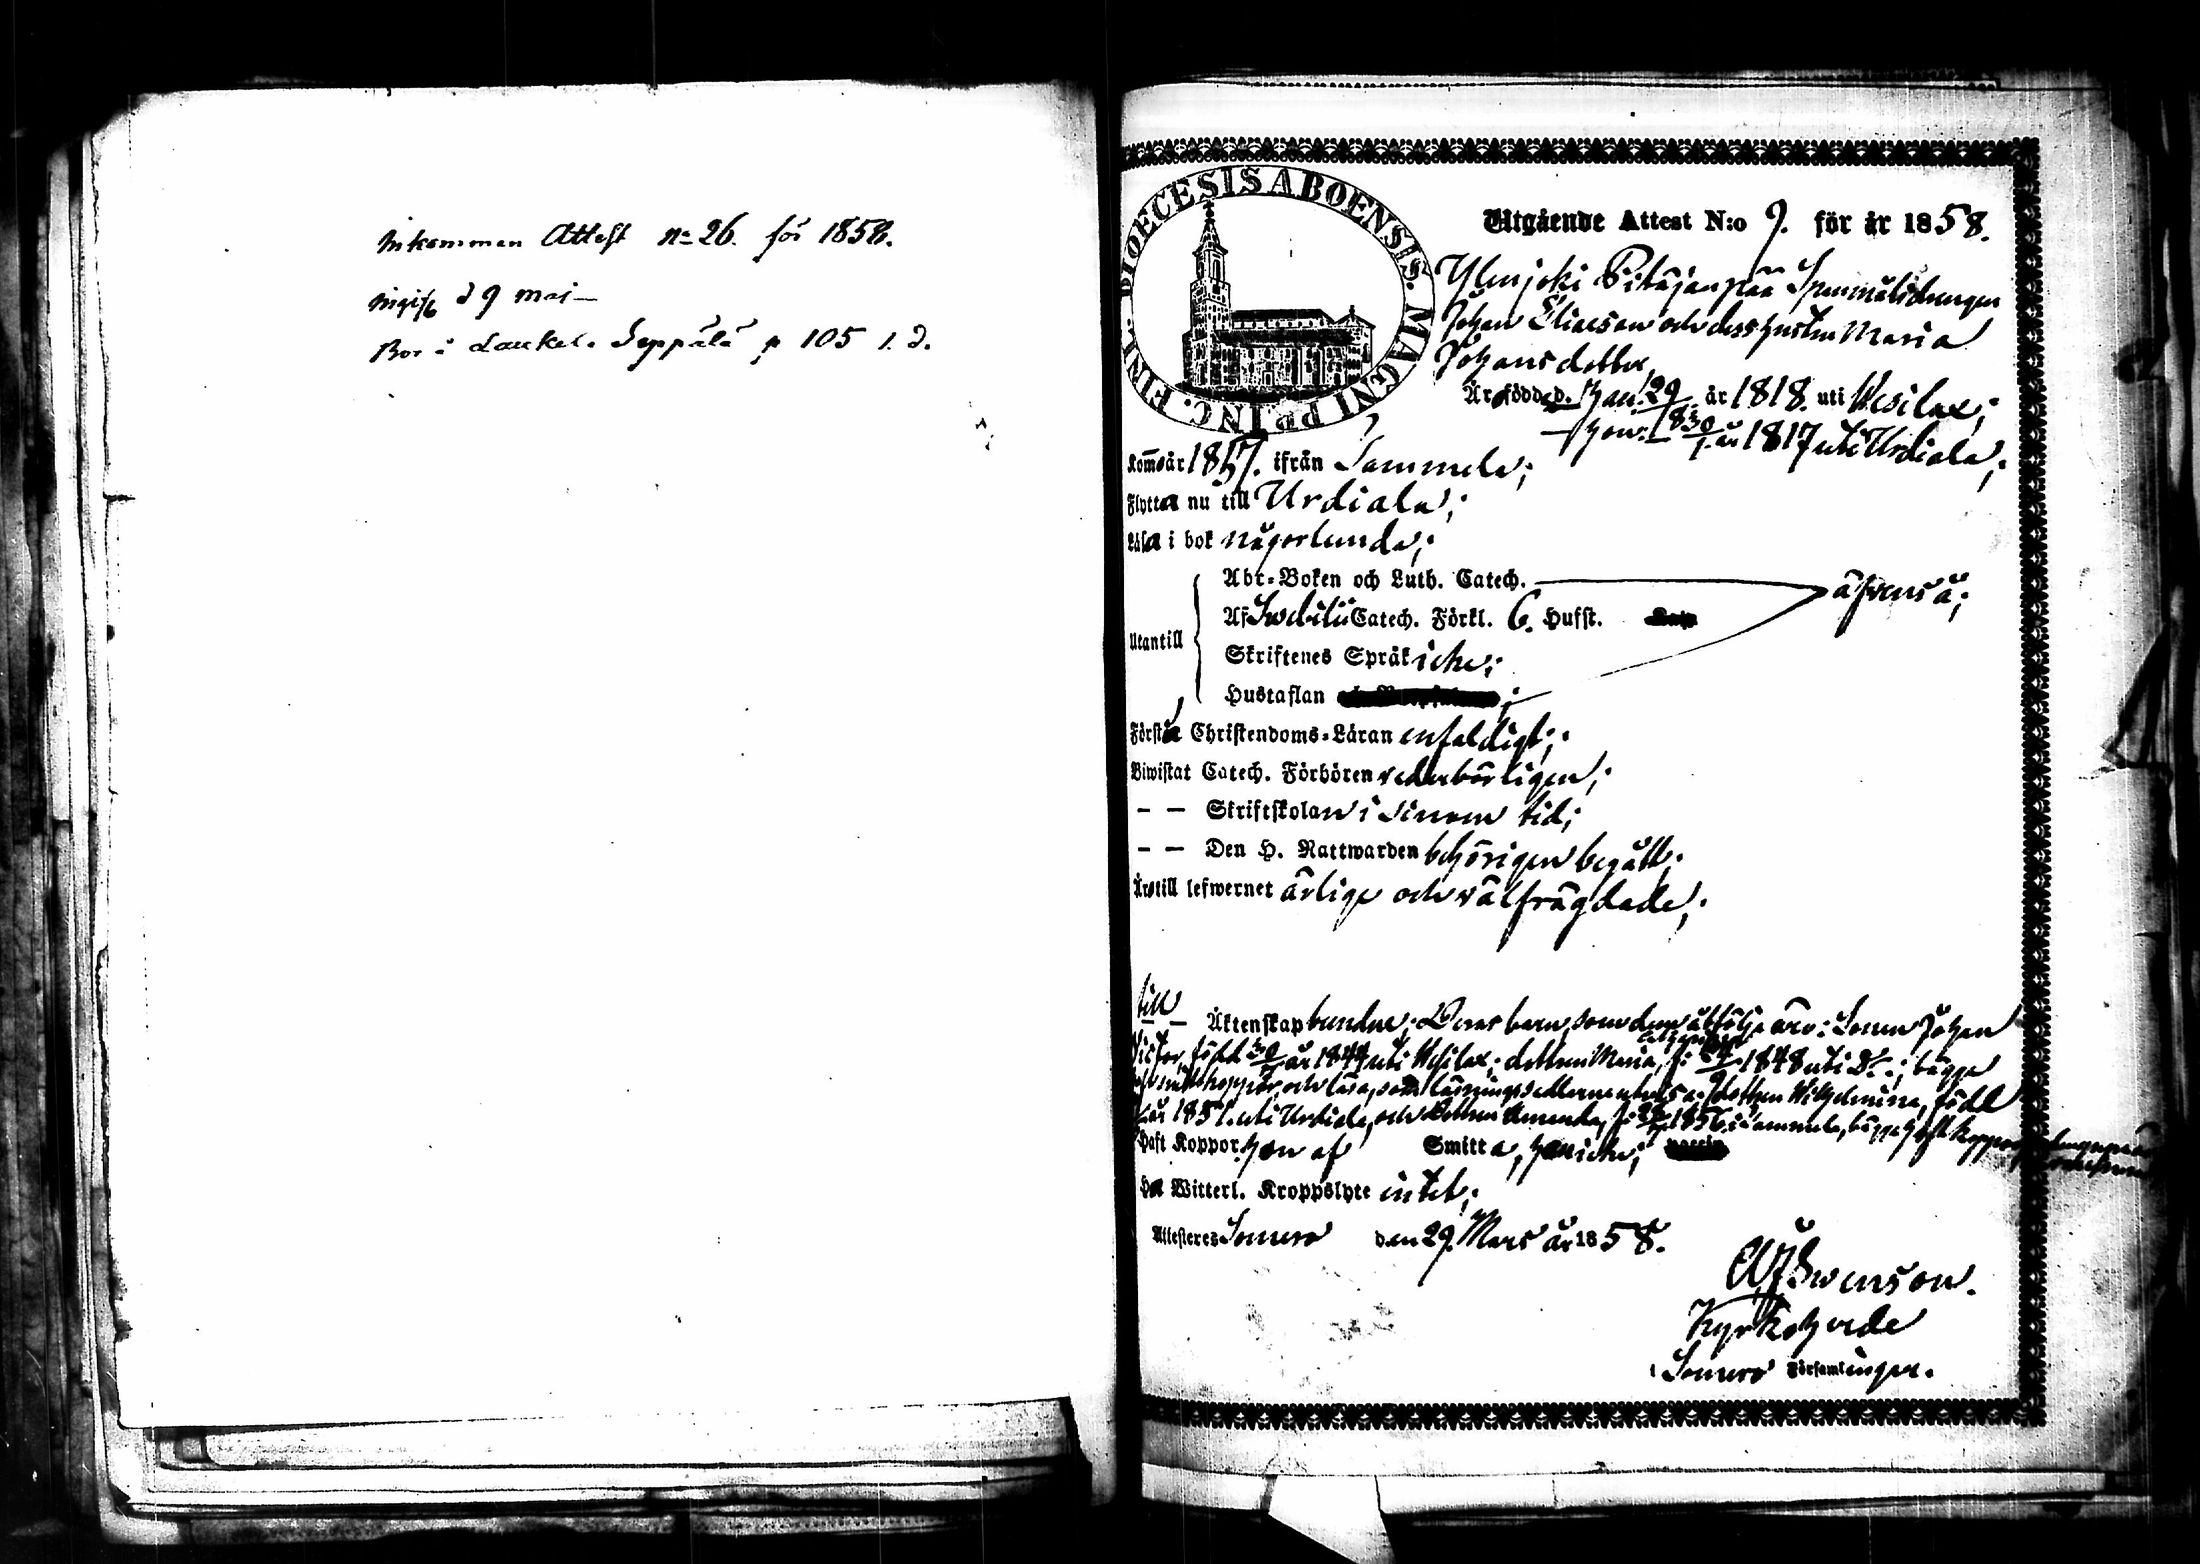 Inkommen Attest no 26. för 1858.
ingift d 9 maj
Bor i Laukel. Seppälä p 105 1. d.
DIOECESIS ABOENSIS. MAGNI PRINC. FINL.
Utgående Attest N:o 9. för år 1858.
Ylenjoki Pitäjänpää Spanmålsdrengen
Johan Eliaeson och dess hustru Maria
Johansdotter
Äro födde d. han: 29 år 1818. uti Wesilax;
hon: år 1817 uti Urdiala;
Komo år 1857. ifrån Tammela;
Flytta nu till Urdiala;
Läsa i bok någorlunda;
Utantill
Abc-Boken och Luth. Catech. äfvenså;
Af Svebilii Catech. Förkl. 6. Hufst.
Skriftenes Språk icke;
Hustaflan
Förstå Christendoms-Läran enfaldigt;
Biwistat Catech. Förhören vederbörligen;
— — Skriftskolan i sinom tid;
— — Den H. Nattwarden behörigen begått;
Äro till lefwernet ärlige och välfrägdade;
till
— Äktenskap bundne; Deras barn, som dem åtfölja äro: Sonen Johan
Victor, född 30 år 1844 uti Wesilax; dottren Maria, f: 1848 uti Do; bägge
haft koppor, och läsa, som läsningssedlarne utvisa; dottren Wilhelmina, född
år 1851. uti Urdiala, och dottren Amanda, f: 1856. i Tammela, bägge haft koppor
Haft Koppor hon af Smitta, han icke;
Ha Witterl. Kroppslyte intet;
Attesteres Somero den 29. Mars år 1858.
Swenson.
Kyrkoherde
i Somero Församlingar.